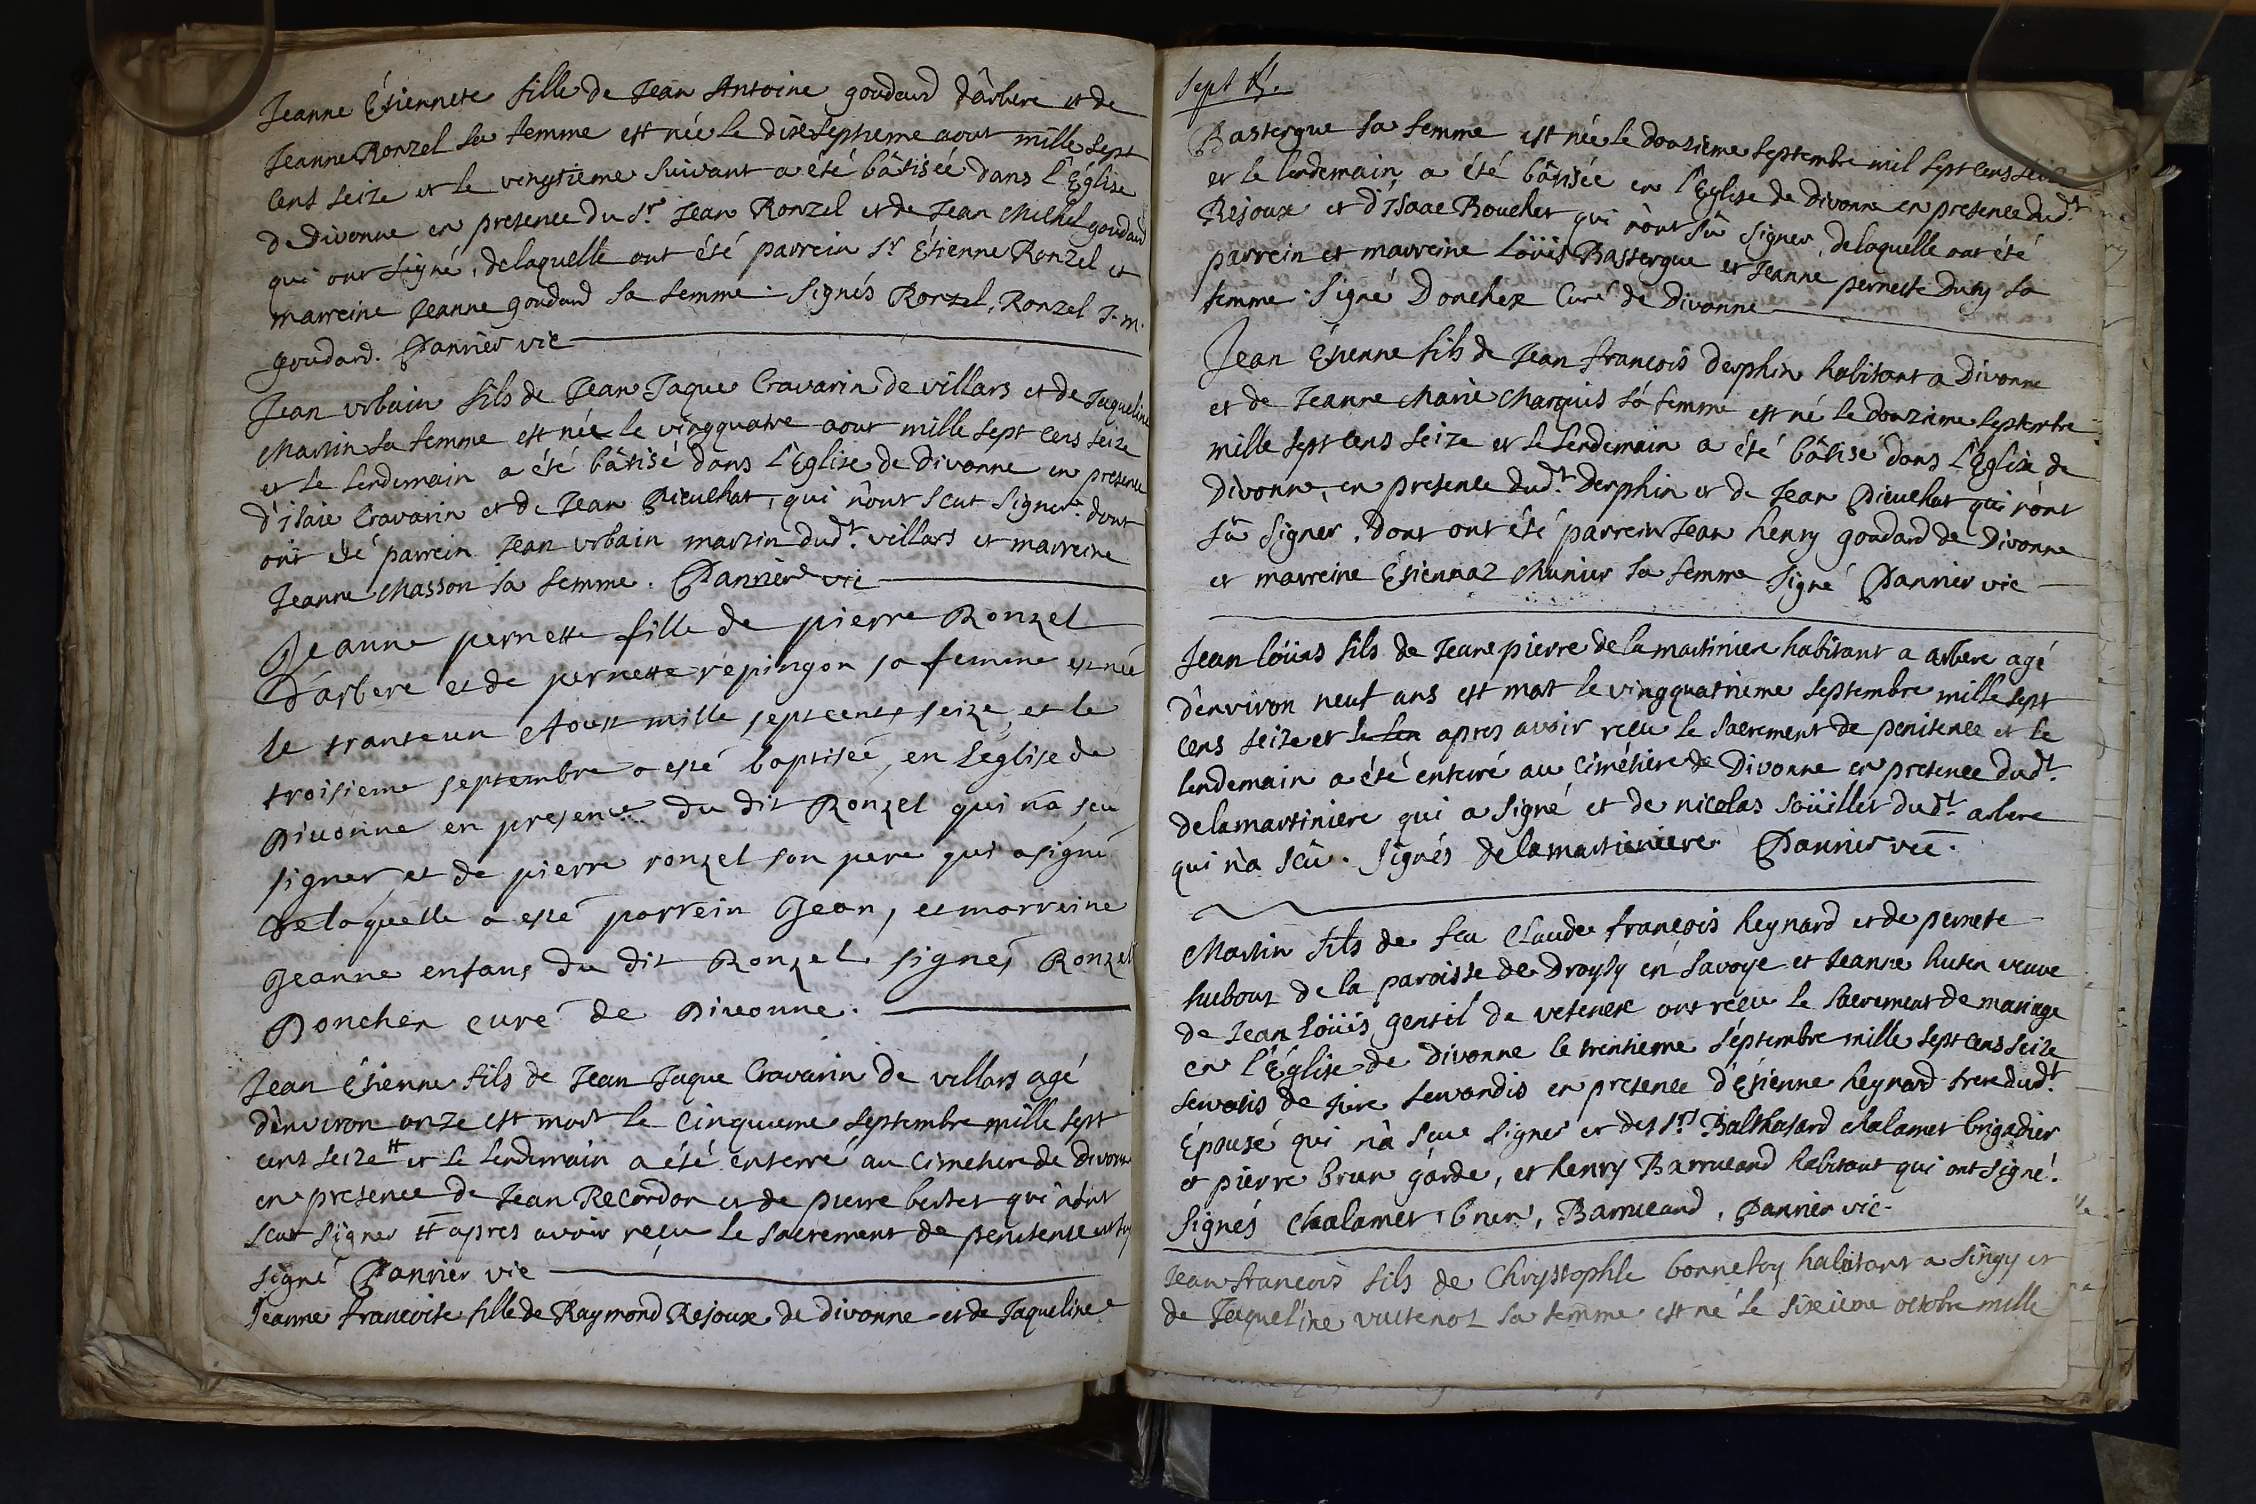 Jeanne Étiennete fille de Jean Antoine goudard d'arbere et de
Jeanne Ronzel sa femme est née le dixseptieme aout mille sept
cens seize et le vingtieme suivant a été bâtisée dans l'Eglise
de Divonne en presence du Sr Jean Ronzel et de Jean Michel goudard
qui ont signé, delaquelle ont été parrein Sr Étienne Ronzel et
marreine Jeanne goudard sa femme. signés Ronzel, Ronzel J. m.
goudard. Pannier vic
Jean urbain fils de Jean Jaque Cravarin de villars et de Jaqueline
Martin sa femme est née le vingquatre aout mille sept cens seize
et le lendemain a été bâtisé dans l'Eglise de Divonne en presence
d'isaie Cravarin et de Jean Pieuchat, qui n'ont scut signer. dont
ont été parrein Jean urbain martin dudt. villars et marreine
Jeanne Masson sa femme. Pannier vic
Jeanne pernette fille de pierre Ronzel
D'arbere et de pernette repingon sa femme est née
le tranteun Aoust mille septcents seize, et le
troisieme septembre a esté baptisée, en l'église de
Divonne en presence du dit Ronzel qui n'a scu
signer et de pierre ronzel son pere qui a signé
Delaquelle a esté parrein Jean, et marreine
Jeanne enfans du dit Ronzel. signés Ronzel
Doncher curé de Divonne.
Jean étienne fils de Jean Jaque Cravarin de villars agé
d'environ onze est mort le Cinquieme septembre mille sept
cens seize # et le lendemain a été enterré au Cimetiere de Divonne
en presence de Jean Recordon et de pierre bertet qui n'ont
scut signer # apres avoir reçu le sacrement de penitence
signé Pannier vic
Jeanne francoise fille de Raymond Rejoux de divonne et de Jaqueline
Sept
Bastergue sa femme est née le douzieme septembre mil sept cens seize
et le lendemain a été bâtisée en l'Eglise de divonne en presence dudt.
Rejoux et d'Isaac Bouchet qui n'ont sû signer, delaquelle ont été
parrein et marreine Loüis Bastergue et Jeanne pernette Duty sa
femme. Signé Doncher Curé de Divonne
Jean Étienne fils de Jean francois derphin habitant a Divonne
et de Jeanne Marie Marquis sa femme est né le douzieme septembre
mille sept cens seize et le lendemain a été bâtisé dans l'Eglise de
Divonne, en presence dudt. Derphin et de Jean Pieuchat qui n'ont
sû signer. dont ont été parrein Jean henry goudard de Divonne
et marreine Étiennaz Munier sa femme signé Pannier vic
Jean loüis fils de Jean pierre de la martiniere habitant a arbere agé
d'environ neuf ans est mort le vingquatrieme septembre mille sept
cens seize et le len apres avoir reçu le sacrement de penitence et le
lendemain a été enterré au Cimétiere de Divonne en presence dudt.
delamartiniere qui a signé et de nicolas soüillet dudt. arbere
qui n'a sçû. signés delamartieniere. Pannier vic.
Martin fils de feu Claude françois heynard et de pernete
hubout de la paroisse de Droysy en Savoye et Jeanne huten veuve
de Jean loüis gentil de vetenex ont reçu le sacrement de mariage
en l'Église de divonne le trentieme séptembre mille sept cens seize
servatis de jure servandis en presence d'Étienne heynard frere dudt.
Épousé qui n'a sçu signer et des srs Balthasard chalamet brigadier
et pierre brun gârde, et henry Barrucand habitant qui ont signé.
Signés Chalamet, brun, Barrucand, Pannier vic.
Jean francois fils de Chrystophle bonnefoy habitant a singy et
de Jaqueline vuitenot sa femme est né le sixieme octobre mille